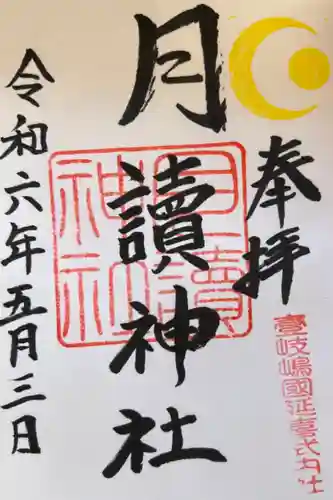 奉拝
壱岐嶋國延喜式内社
月讀神社
月讀
神社
令和六年五月三日